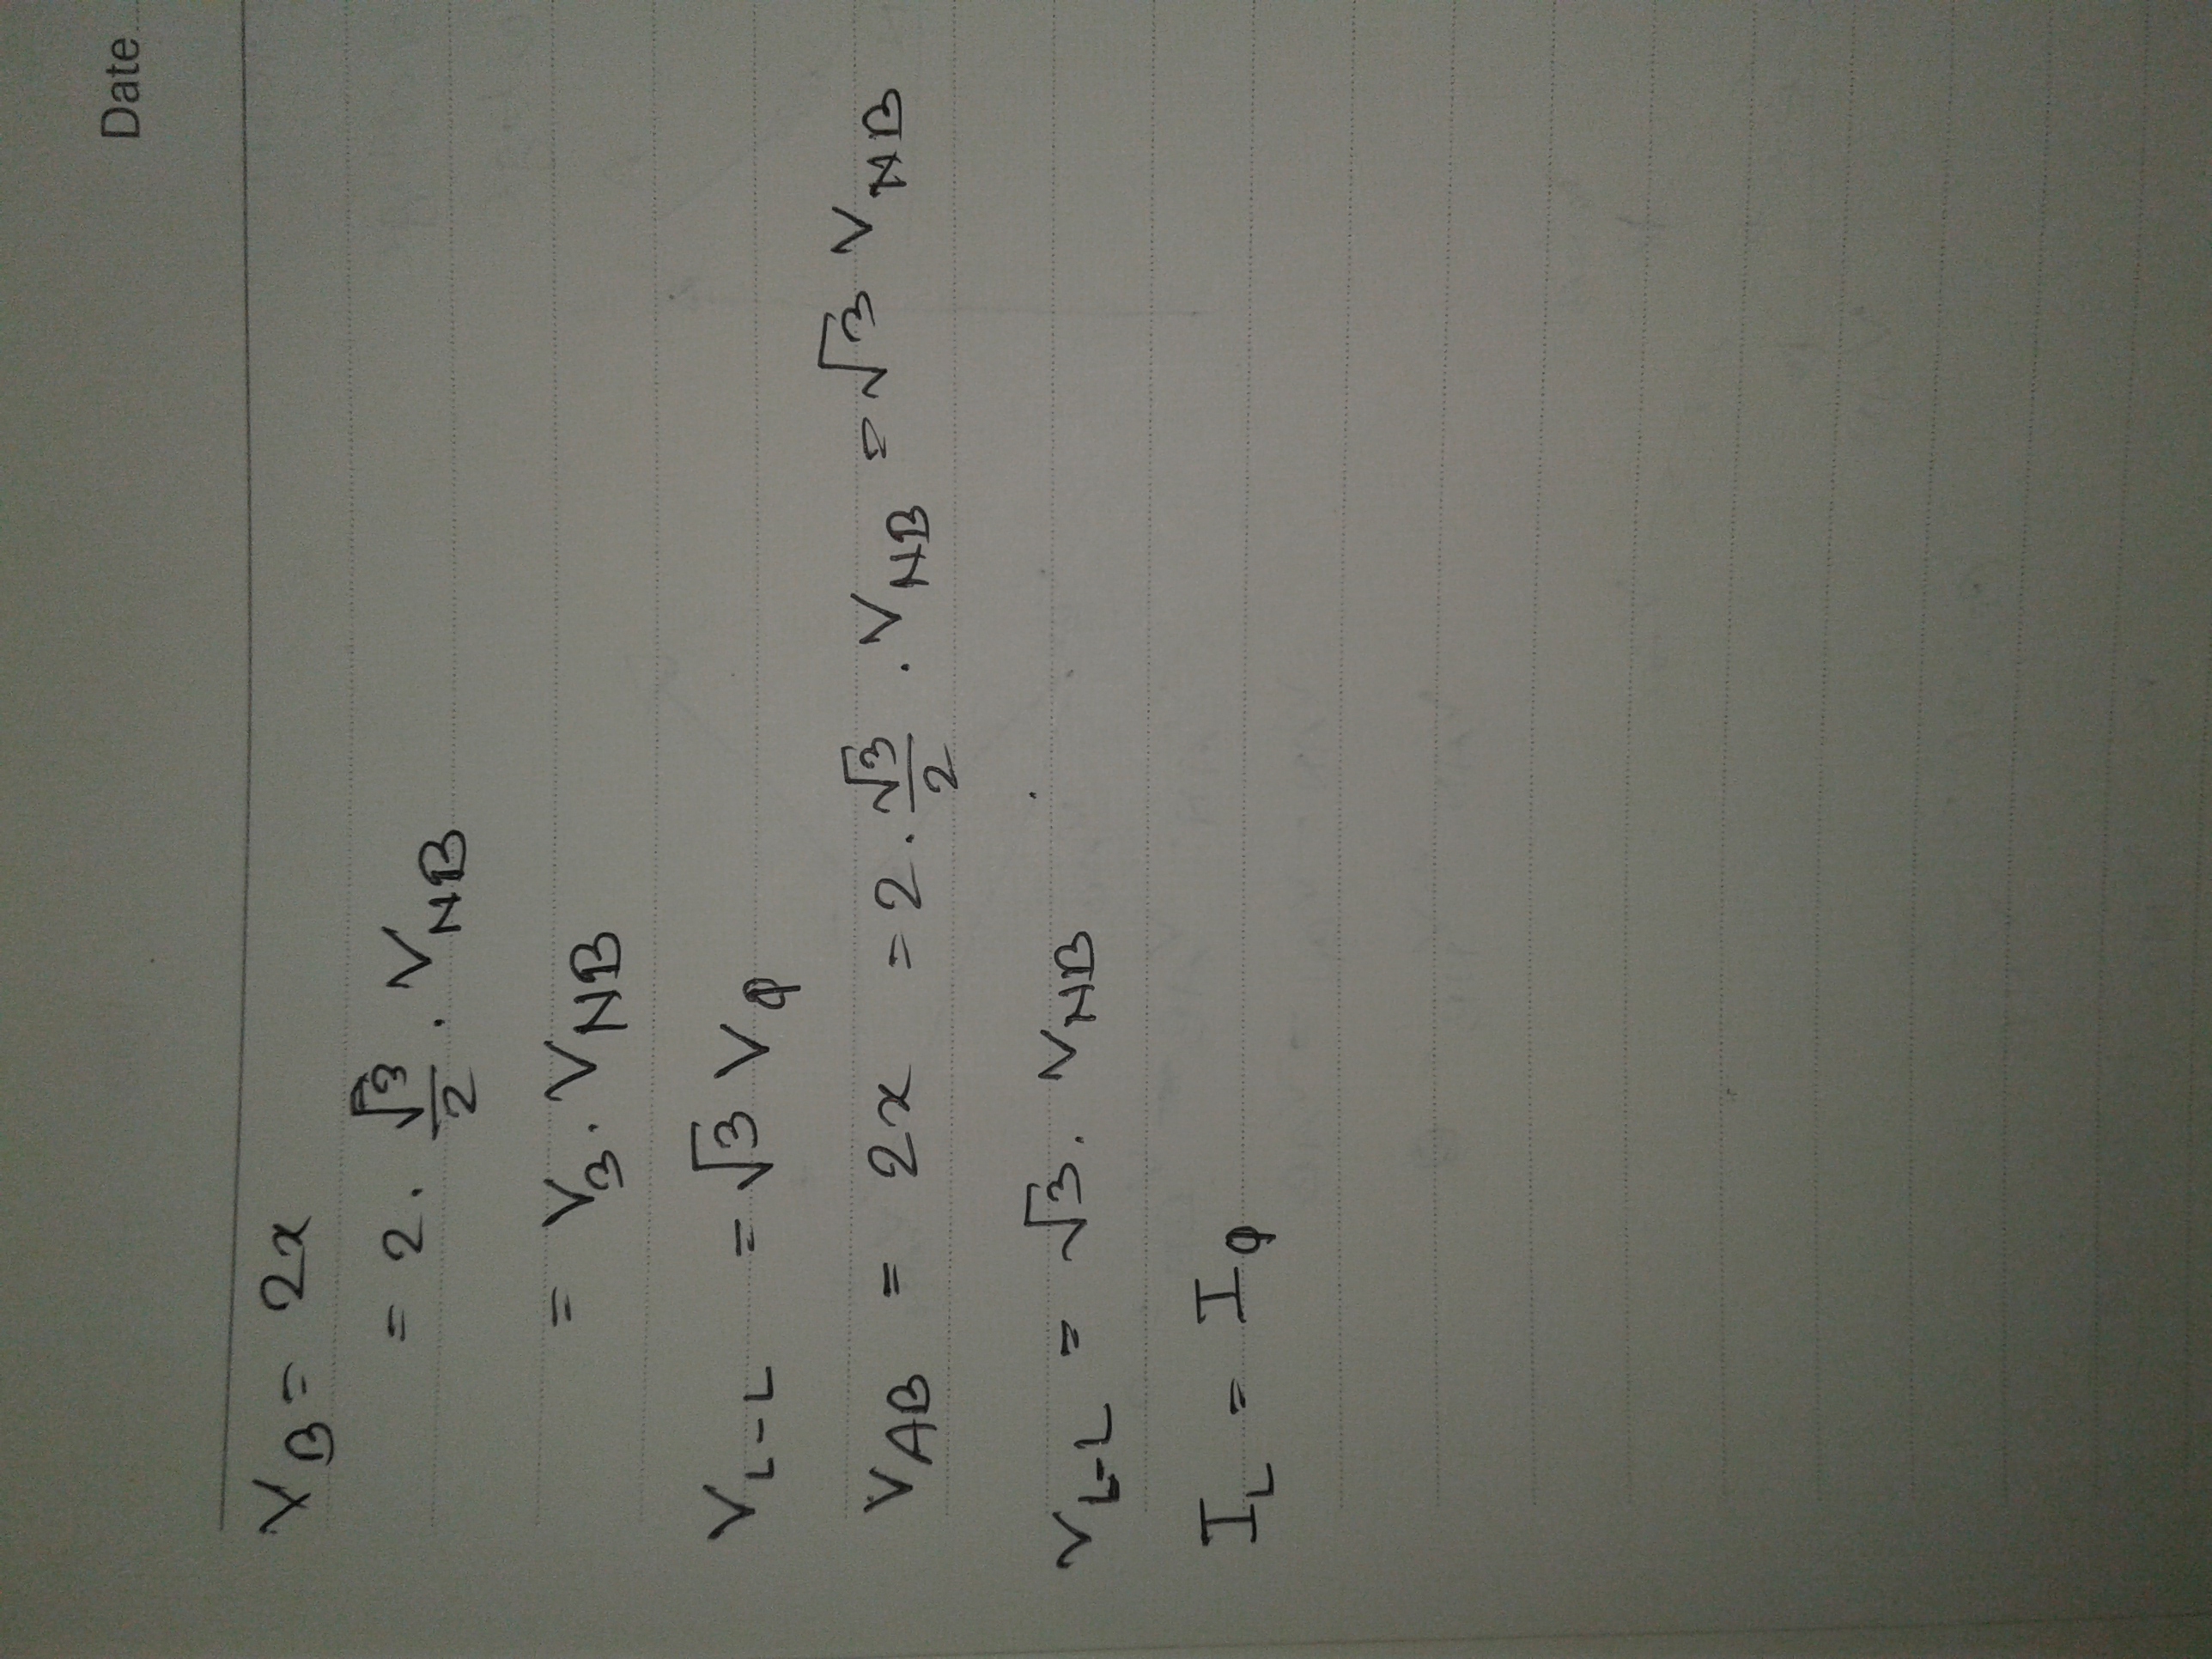 Date
V_B = 2x
= 2 . √3/2 . V_NB
= V_3 . V_NB
V_L-L = √3 V_φ
V_AB = 2x = 2 . √3/2 . V_NB = √3 V_NB
V_L-L = √3 . V_NB
I_L = I_φ